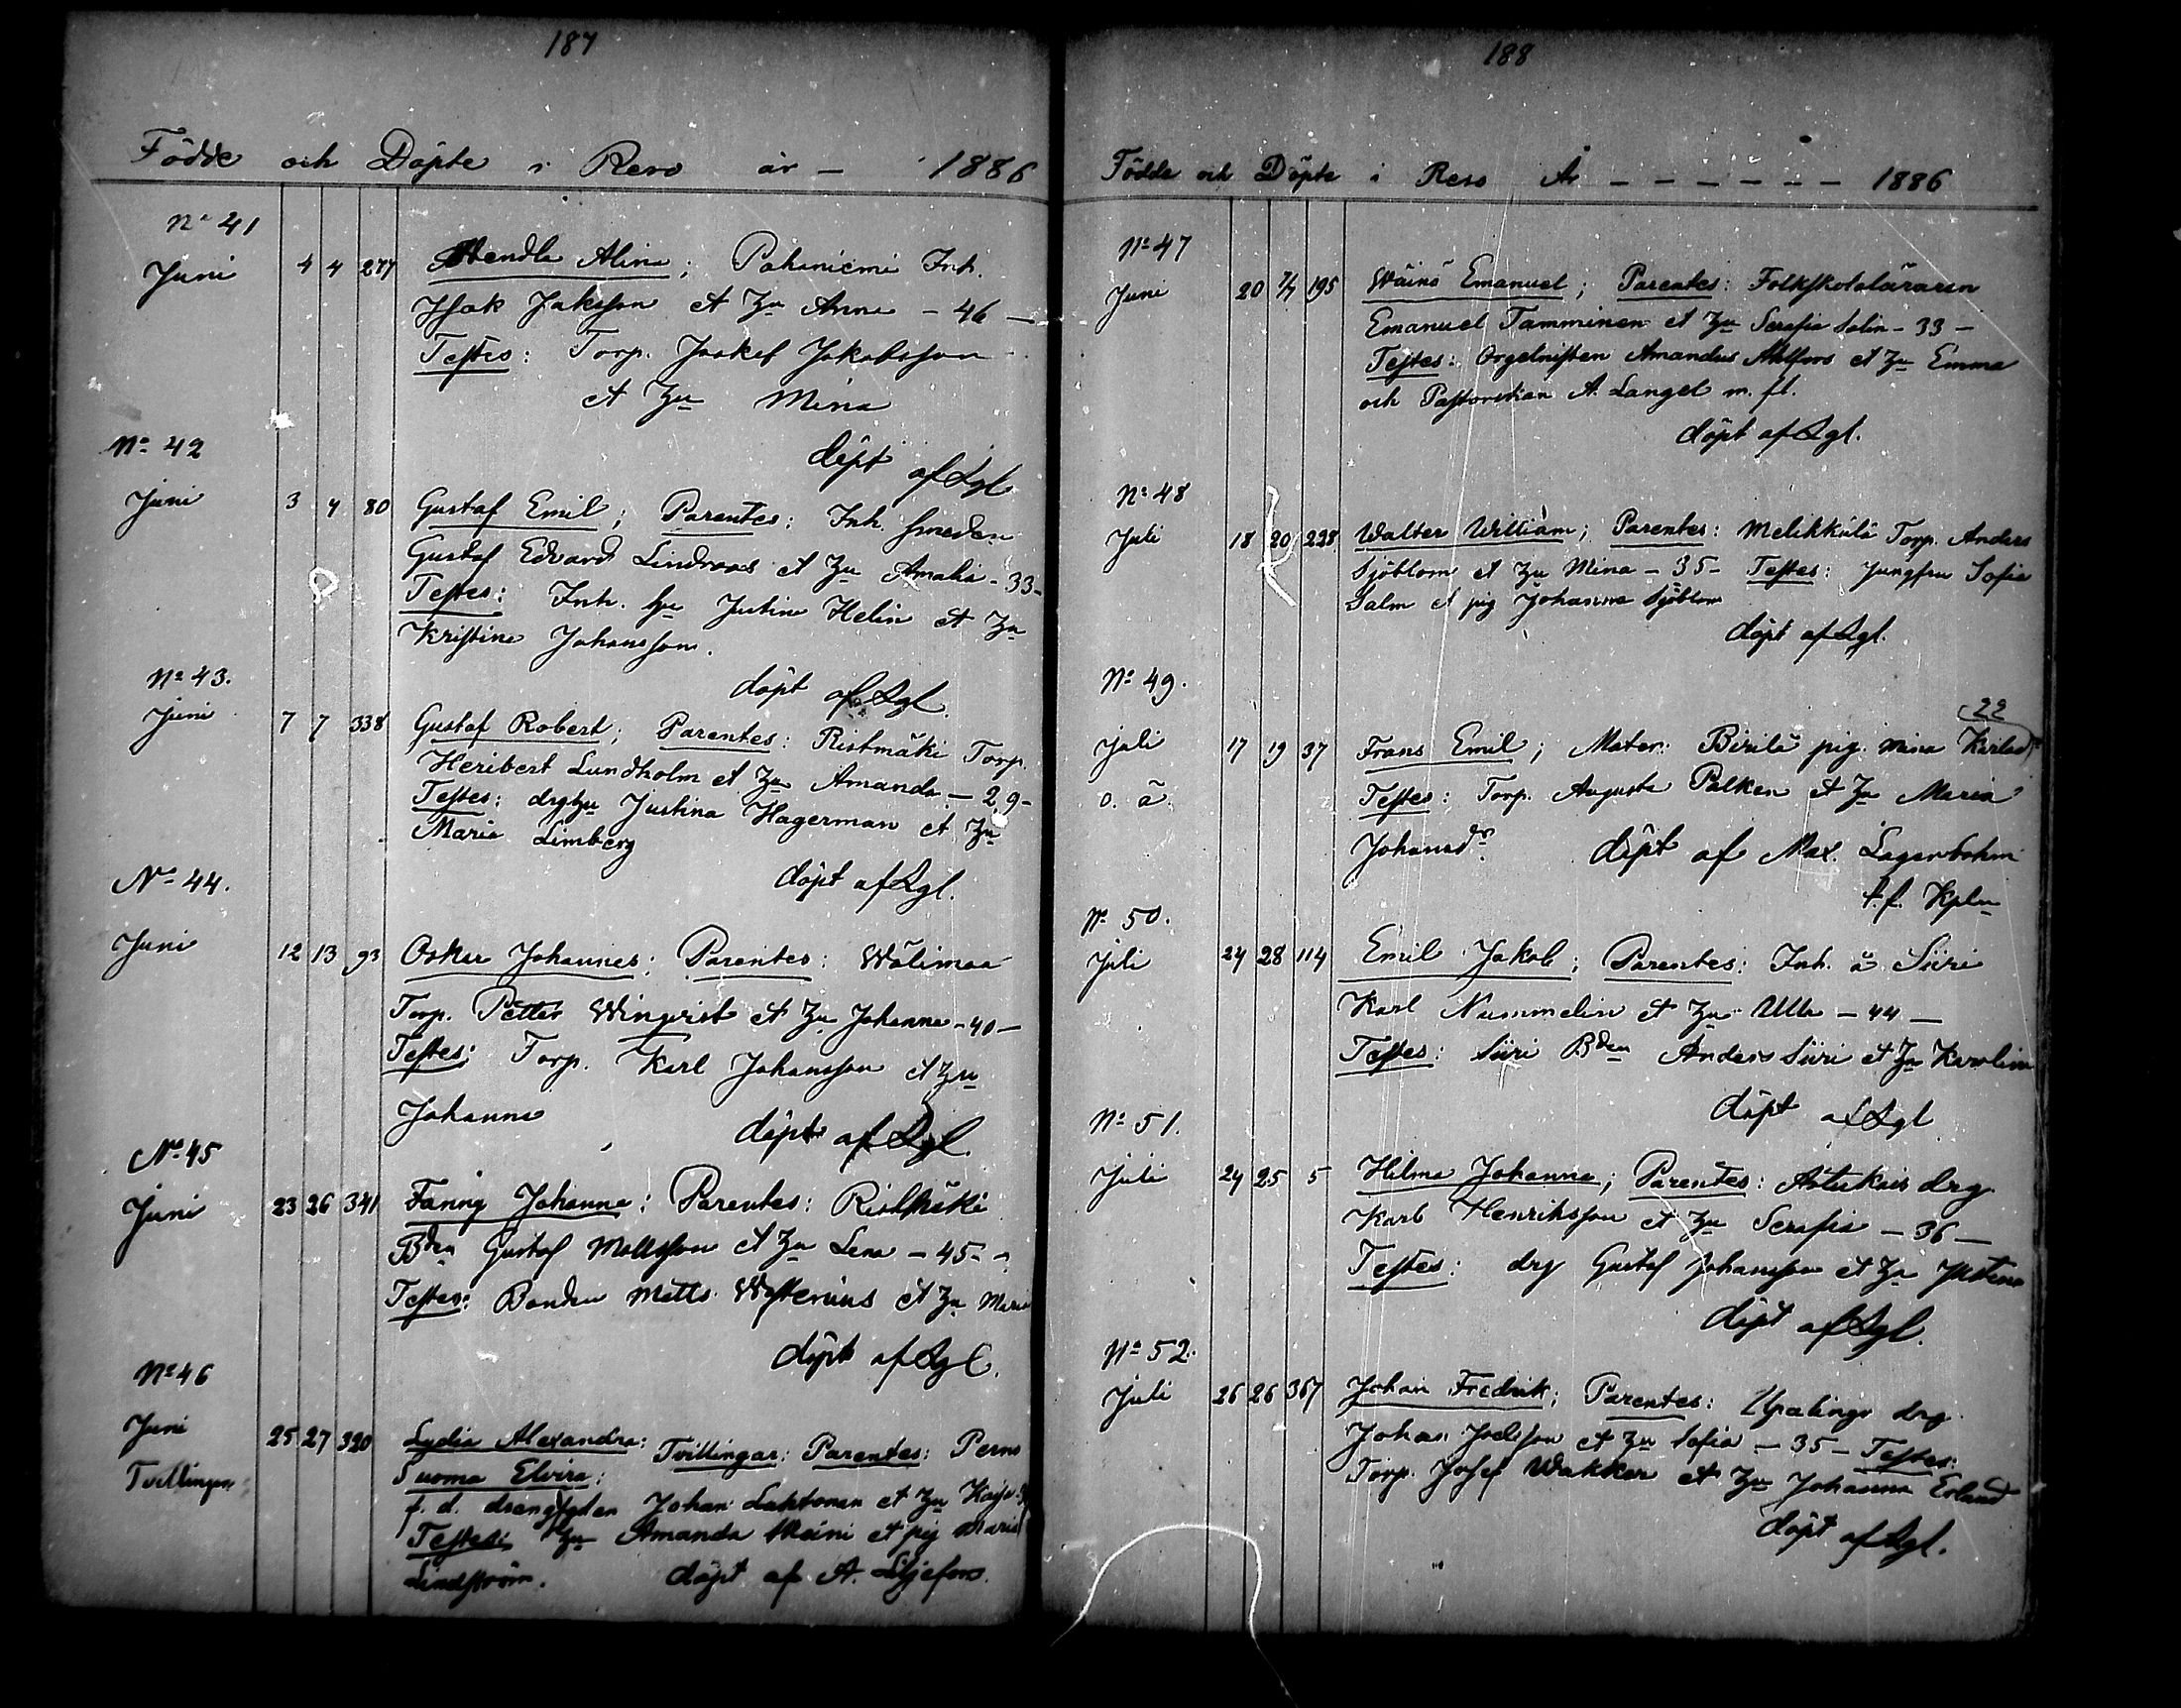 187
Födde och Döpte i Reso år — 1886
No 41
Juni 4 4 277 Wendla Alina; Pahaniemi Inh.
Isak Jaksson et Hu Anna - 46 —
Testes: Torp. Josef Jakobsson
et Hu Mina
döpt af Lgl
No 42
Juni 3 4 80 Gustaf Emil; Parentes: Inh. smeden
Gustaf Edvard Lindroos et Hu Amalia - 33 -
Testes: Inh. hu Justina Helin et Hu
Kristina Johansson.
döpt af Lgl.
No 43.
Juni 7 7 338 Gustaf Robert; Parentes: Ristmäki Torp.
Heribert Lundholm et Hu Amanda — 29 -
Testes: drghu Justina Hagerman et Hu
Maria Limberg
döpt af Lgl.
No 44.
Juni 12 13 93 Oskar Johannes; Parentes: Wälimaa
Torp. Petter Winqvist et Hu Johanna - 40 —
Testes: Torp. Karl Johansson et Hu
Johanna döpt af Lgl.
No 45
Juni 23 26 341 Fanny Johanna; Parentes: Ristmäki
Bden Gustaf Mattsson et Hu Lena - 45 -
Testes: Bonden Matts Westerius et Hu Maria
döpt af Lgl.
No 46
Juni 25 27 320 Lydia Alexandra: Tvillingar: Parentes: Perno
Tvillingar Suoma Elvira:
f. d. dräng Johan Lahtonen et Hu Kajsa
Testes: Hu Amanda et pig Maria
Lindström. döpt af A. Liljefors.
188
Födde och Döpte i Reso År - - - - - - - 1886
No 47
Juni 20 7/7 195 Wäinö Emanuel; Parentes: Folkskoleläraren
Emanuel Tamminen et Hu Serafia Salin - 33 -
Testes: Orgelnisten Amandus Ahlfors et Hu Emma
och Pastorskan A. Langel m. fl.
döpt af Lgl.
No 48
Juli 18 20 228 Walter William; Parentes: Melikkälä Torp. Anders
Sjöblom et Hu Mina - 35 - Testes: Jungfru Sofia
Salm et pig Johanna Sjöblom
döpt af Lgl.
No 49.
22
Juli 17 19 37 Frans Emil; Mater: Birilä pig. Mina Karlsdr
o. ä. Testes: Torp. Augusta Palken et Hu Maria
Johansdr. döpt af Max. Lagerbohm
t. f. Kpln
No 50.
Juli 24 28 114 Emil Jakob; Parentes: Inh. å Siiri
Karl Nummelin et Hu Ulla - 44 —
Testes: Siiri Bden Anders Siiri et Hu Karolina
döpt af Lgl
No 51.
Juli 24 25 5 Hilma Johanna; Parentes: drg
Karl Henriksson et Hu Serafia - 36 —
Testes: drg Gustaf Johansson et Hu Justina
döpt af Lgl.
No 52.
Juli 26 26 367 Johan Fredrik; Parentes: Upalingo drg.
Johan et Hu Sofia - 35 - Testes:
Torp. Josef Wakker et Hu Johanna Erland
döpt af Lgl.